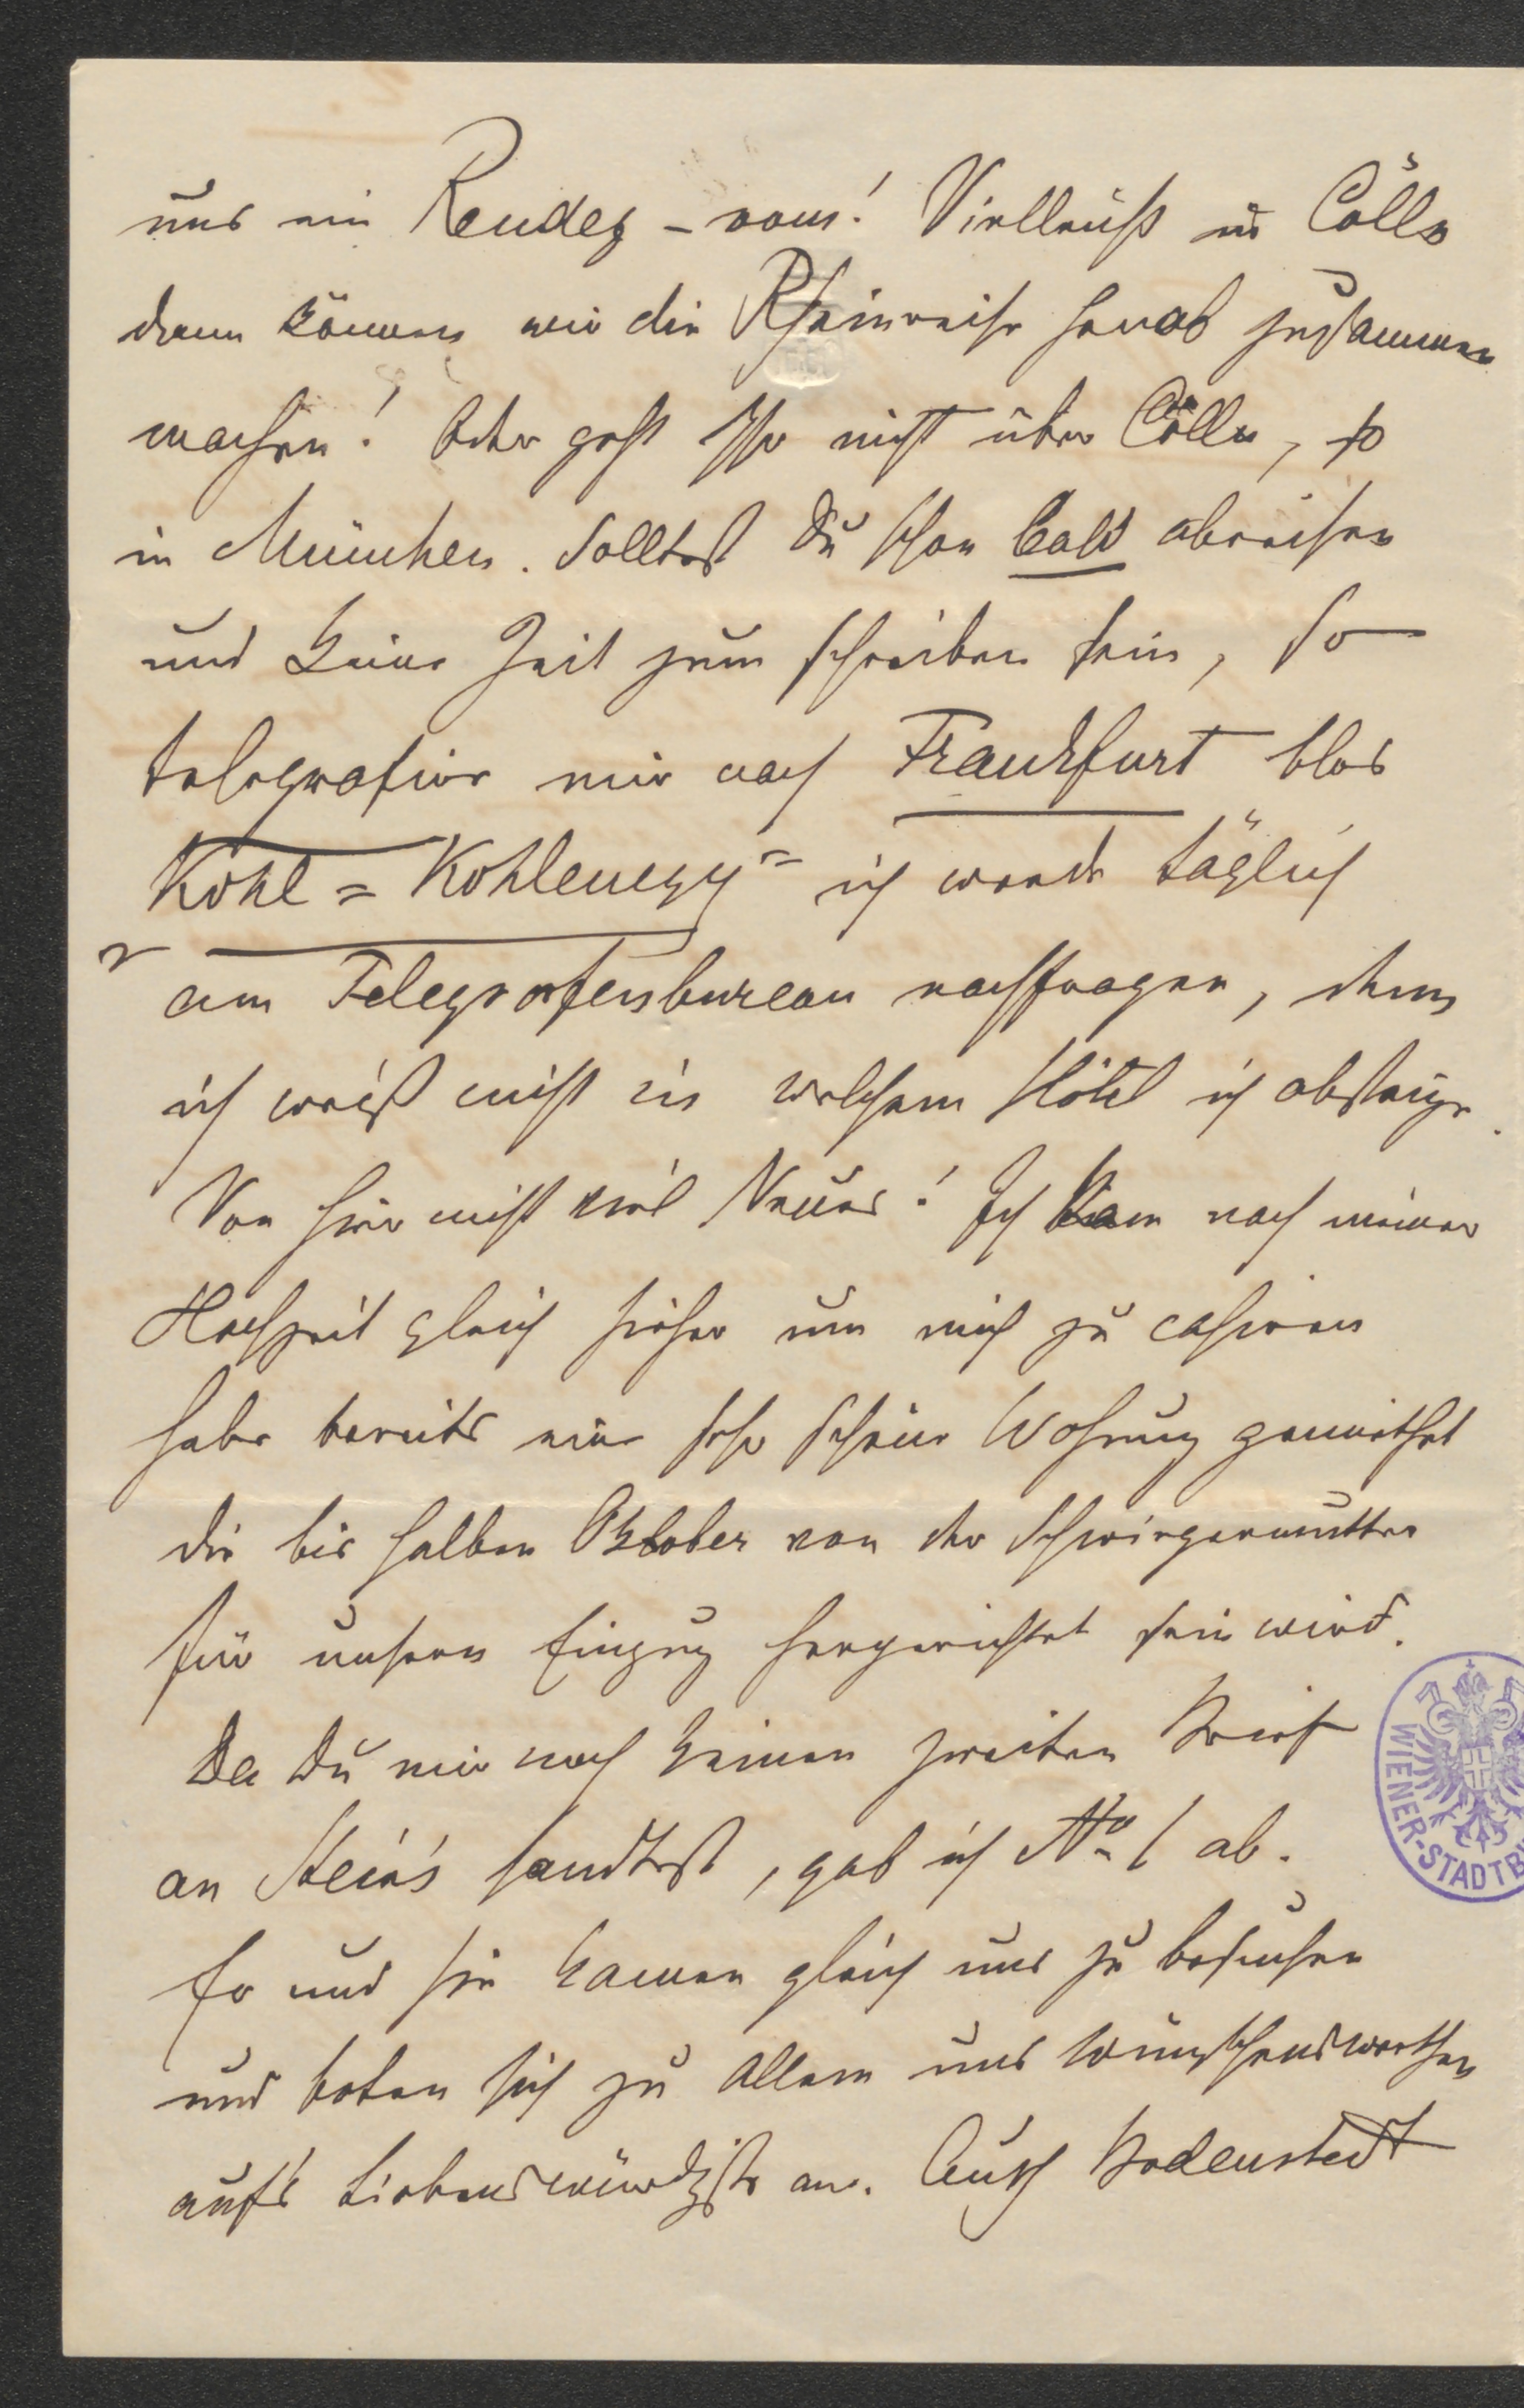 uns ein Rendez-vous! Vielleicht in Cölln
dann können wir die Rheinreise herab zusammen
machen! Oder geht Ihr nicht über Cölln, so
in München. Solltest Du schon bald abreisen
und keine Zeit zum schreiben sein, so
telegrafire mir nach Frankfurt blos
Kohl = Kohlenegg" ich werde täglich
am Telegrafenbureau nachfragen, denn
ich weiß nicht in welchem Hôtel ich absteige.
Von hier nicht viel Neues! Ich kam nach meiner
Hochzeit gleich hieher um mich zu
habe bereits eine sehr schöne Wohnung gemiethet
die bis halben Oktober von der Schwiegermutter
für unsern Einzug hergerichtet sein wird.
Da Du mir noch keinen zweiten Brief
an sandtest, gab ich No 1 ab.
Er und sie kamen gleich uns zu besuchen
und boten sich zu Allem uns wünschenswerthen
aufs liebenswürdigste an. Auch Bodenstedt
WIENER-STADTB